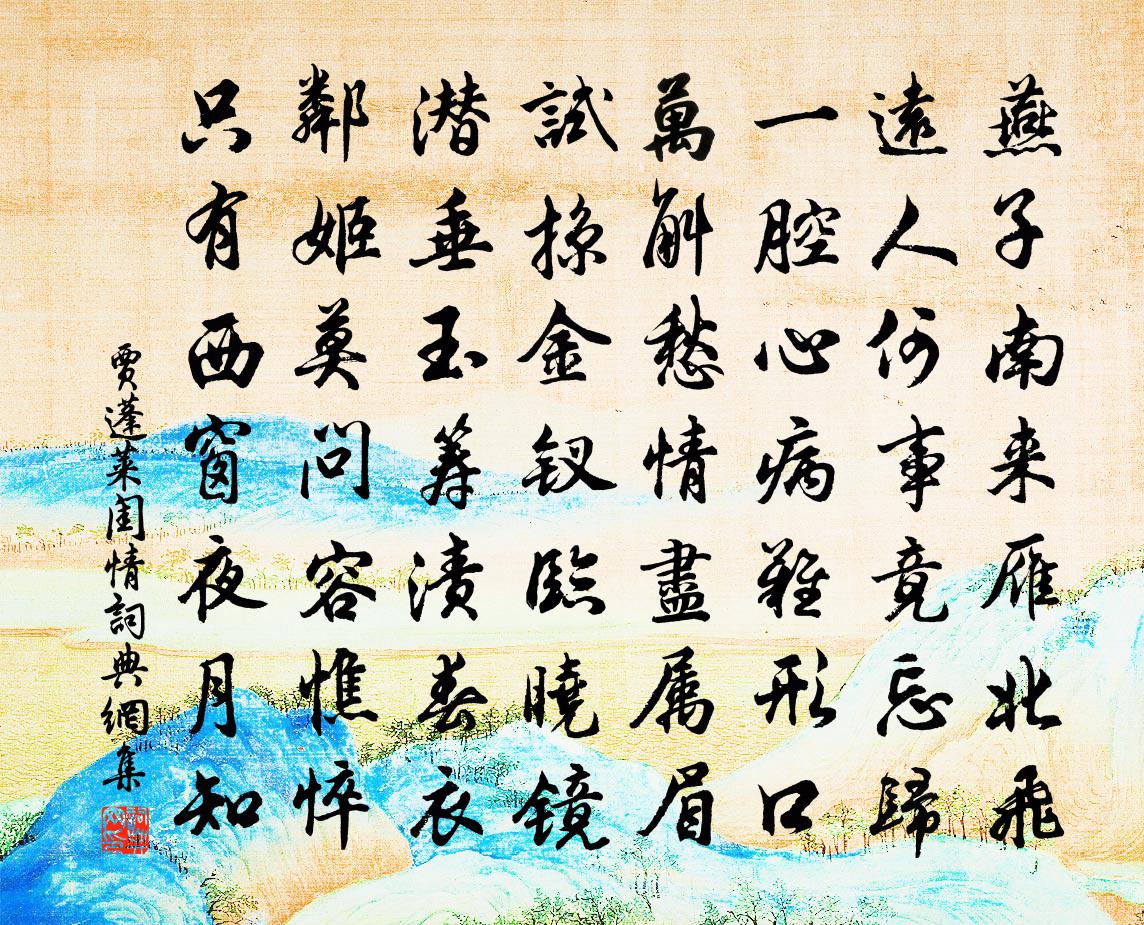 燕子南来雁北飛
遠人何事竟忘歸
一腔心病難形口
萬斛愁情盡属眉
試掠金釵臨曉镜
潜垂玉箸漬春衣
鄰姬莫问容憔悴
只有西窗夜月知
賈蓬萊閨情詞典網集